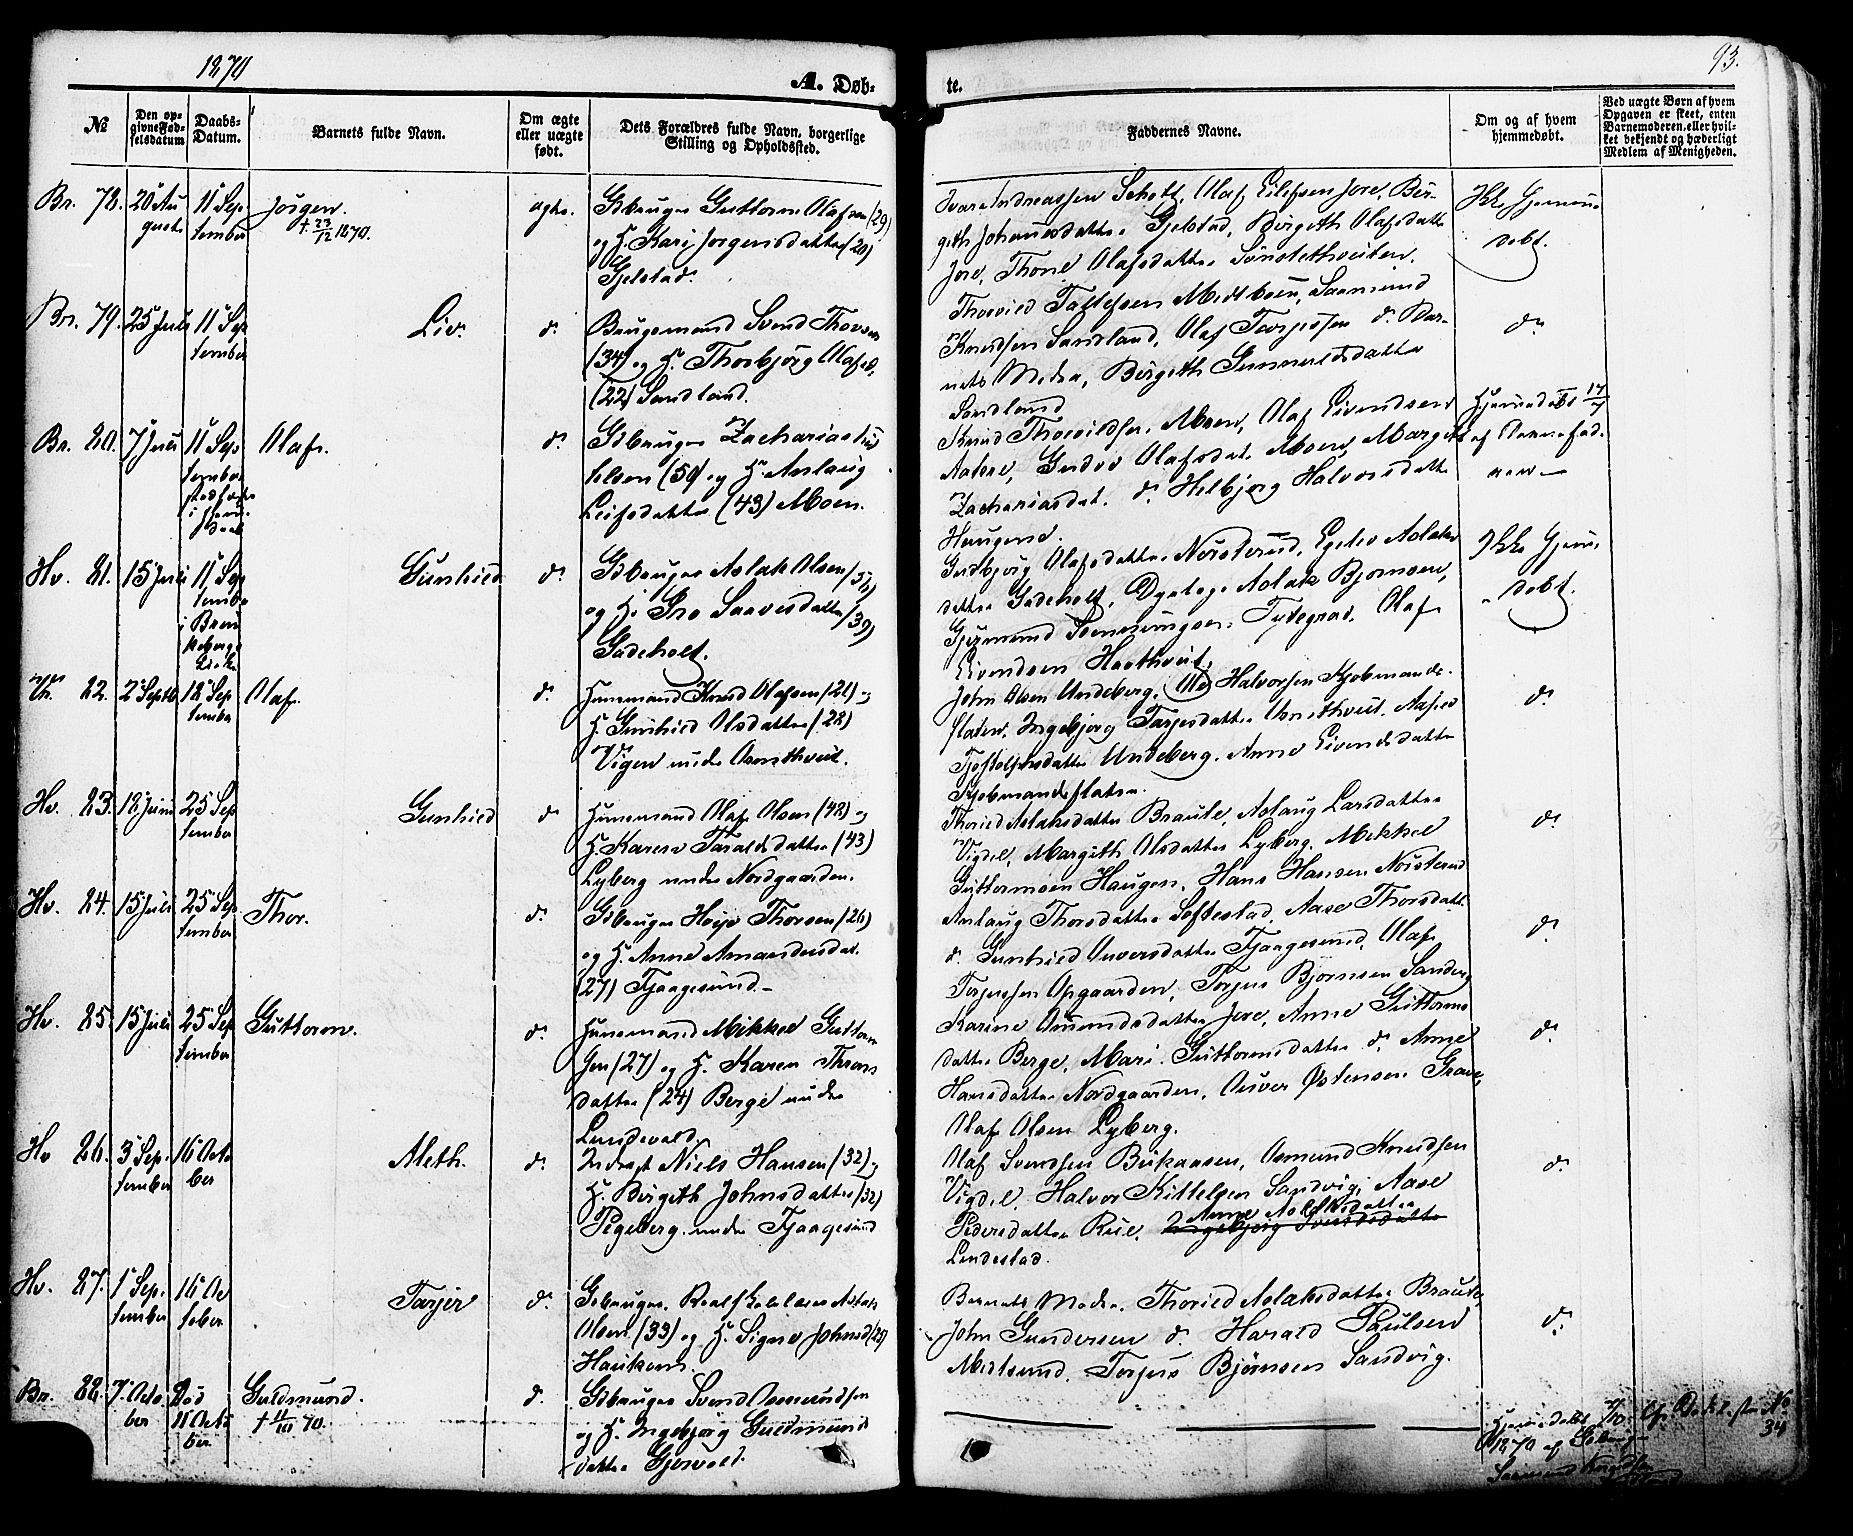 1870
A. Døb-
te.
93.
№
Den op-
givne Fød-
selsdatum
Daabs-
Datum.
Barnets fulde Navn.
Om ægte
eller uægte
født.
Dets Forældres fulde Navn, borgerlige
Stilling og Opholdssted.
Faddernes Navne.
Om og af hvem
hjemmedøbt.
Ved uægte Børn af hvem
Opgaven er skeet, enten
Barnemoderen, eller hvil-
ket bekjendt og hæderligt
Medlem af Menigheden.
Br. 78.
20 Au
guste
11 Sep
tember
Jörgen.
† 23/12 1870.
ægte.
Gbruger Guttorm Olafsen (29)
og H. Kari Jørgensdatter (20)
Gjelstad.
Ivar Andreassen Olaf Eilefsen Jore, Bir-
geth Johannesdatter Gjelstad, Birgeth Olafsdatter
Jore, Thone Olafsdatter
Ikke hjemme
döbt.
Br. 79.
25 Juli
11 Sep
tember
Liv.
do
Brugsmand Svend Thovsen
(34) og H. Thorbjörg Olafsd.
(22) Sandland.
Thovild Tallefsen Midtboen, Saamund
Knudsen Sandland, Olaf Tarjessen do Bar-
nets Moder, Birgeth Gunnuldsdatter
Sandland
do
Br. 80.
7 Juli
11 Sep
tember
stadfæstet
i Hjem
daab
Olaf.
do
Gbruger Zacharias
(50) og H. Aslaug
Leifsdatter (43) Moen.
Knud Thovildsen Moen, Olaf Eivendsen
Aakre, Gudve Olafsdat. Moen, Margit
Zachariasdat. do Helbjørg Halvorsdatter
Haugene.
Hjemmedöbt 17/7
af Barnefad-
eren
Hv. 81.
15 Juli
11 Sep
tember
i Brun
keberg
Kirke
Gunhild
do
Gbruger Aslak Olsen
og H. Gro Saavesdatter (39)
Gadeholt.
Gudbjörg Olafsdatter Norsterud, Egelev Aslaks
datter Gadeholt, Aslak Bjornsen,
Gjermund Tytegrav, Olaf
Eivendsen Haathveit.
Ikke hjemme
döbt.
82.
2 Septb
18 Sep
tember
Olaf.
do
Huusmand Knud Olafsen (21) og
H. Gunhild Olsdatter (28)
Vigen under Osmthveit.
John Olsen Undeberg, Ole Halvorsen Kjobmands-
flaten, Ingebjorg Tarjesdatter Osmthveit, Aasne
Tjostolfsdatter Undeberg, Anne Eivendsdatter
Kjobmandsflaten.
do
Hv. 83.
18 Juni
25 Sep
tember
Gunhild
do
Huusmand Olaf Olsen (48) og
H. Karen Taraldsdatter (43)
Lyberg under Nordgaarden.
Thorild Aslaksdatter Braute, Aslaug Larsdatter
Vigdel, Margith Olsdatter Lyberg, Mikkel
Guttormsen Haugen, Hans Hansen Norsterud
do
Hv. 84.
15 Juli
25 Sep
tember
Thor.
do
Gbruger Høje Thorsen (26)
og H. Anne Amundsdat.
(27) Fjaagesund
Aslaug Thorsdatter Softestad, Aase Thorsdatt.
do Gunhild Auversdatter Fjaagesund, Olaf
Torjussen Opgaarden, Torjus Bjornsen Sandvig
do
Hv. 85.
15 Juli
25 Sep
tember
Guttorm.
do
Huusmand Mikkel Guttorm
sen (27) og H. Karen Thrans
datter (24) Berge under
Lundevald.
Karine Amundsdatter Jore, Anne Guttorms
datter Berge, Mari Guttormsdatter do Anne
Hansdatter Nordgaarden, Auver Østensen Grave,
Olaf Olsen Lyberg.
do
Hv 86.
3 Sep.
tember
16 Octo
ber
Aleth.
do
Inderst Niels Hansen (32) og
H. Birgith Johnsdatter (32)
Pegeberg under Fjaagesund
Olaf Svendsen Osmund Knudsen
Vigdel, Halvor Kittelsen Sandvig, Aase
Pedersdatter Rue, Ingebjørg Svendsdatter
Anne Aslaksdatter
Lendestad.
do
Hv. 87.
1 Sep.
tember
16 Oc
tober
Tarjer
do
Gbruger Aslak
Olsen (33) og H. Signe Johnsd (25)
Haukom.
Barnets Moder, Thorild Aslaksdatter Braute,
John Gundersen do Harald Paulsen
Midtsund, Torjus Bjørnsen Sandvig.
do
Br. 88.
7 Octo
ber
Död
11 Octo
ber
Guldmund.
† 11/10 70.
do
Gbruger Svend Osmundsen
og H. Ingebjörg Guldmunds
datter Gjervold.
Hjemmedöbt 7/10
1870 af
Saamund Knudsen
No
34